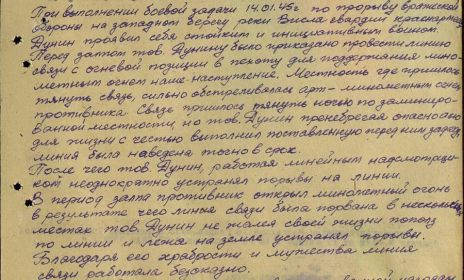 При выполнении боевой задачи 14.01.45г по прорыву вражеской
обороны на западном берегу реки Висла гвардии красноармеец
Дунин проявил себя стойким и инициативным воином.
Перед затем тов. Дунину было приказано провести линию
связи с огневой позиции в пехоту для поддержания мино-
метным огнем наше наступление. Местность где пришлось
тянуть связь, сильно обстреливалась арт-минометным огнем
противника. Связь пришлось тянуть ночью по заминиро-
ванной местности, но тов. Дунин пренебрегая опасно
для жизни с честью выполнил поставленную перед ним задачу,
линия была наведена точно в срок.
После чего тов. Дунин, работая линейным надсмотрщи-
ком неоднократно устранял порывы на линии.
В период залпа противник открыл минометный огонь
в результате чего линия связи была порвана в нескольких
местах тов. Дунин не жалея своей жизни пополз
по линии и лежа на земле устранял порывы.
Благодаря его храбрости и мужества линия
связи работала безотказно.